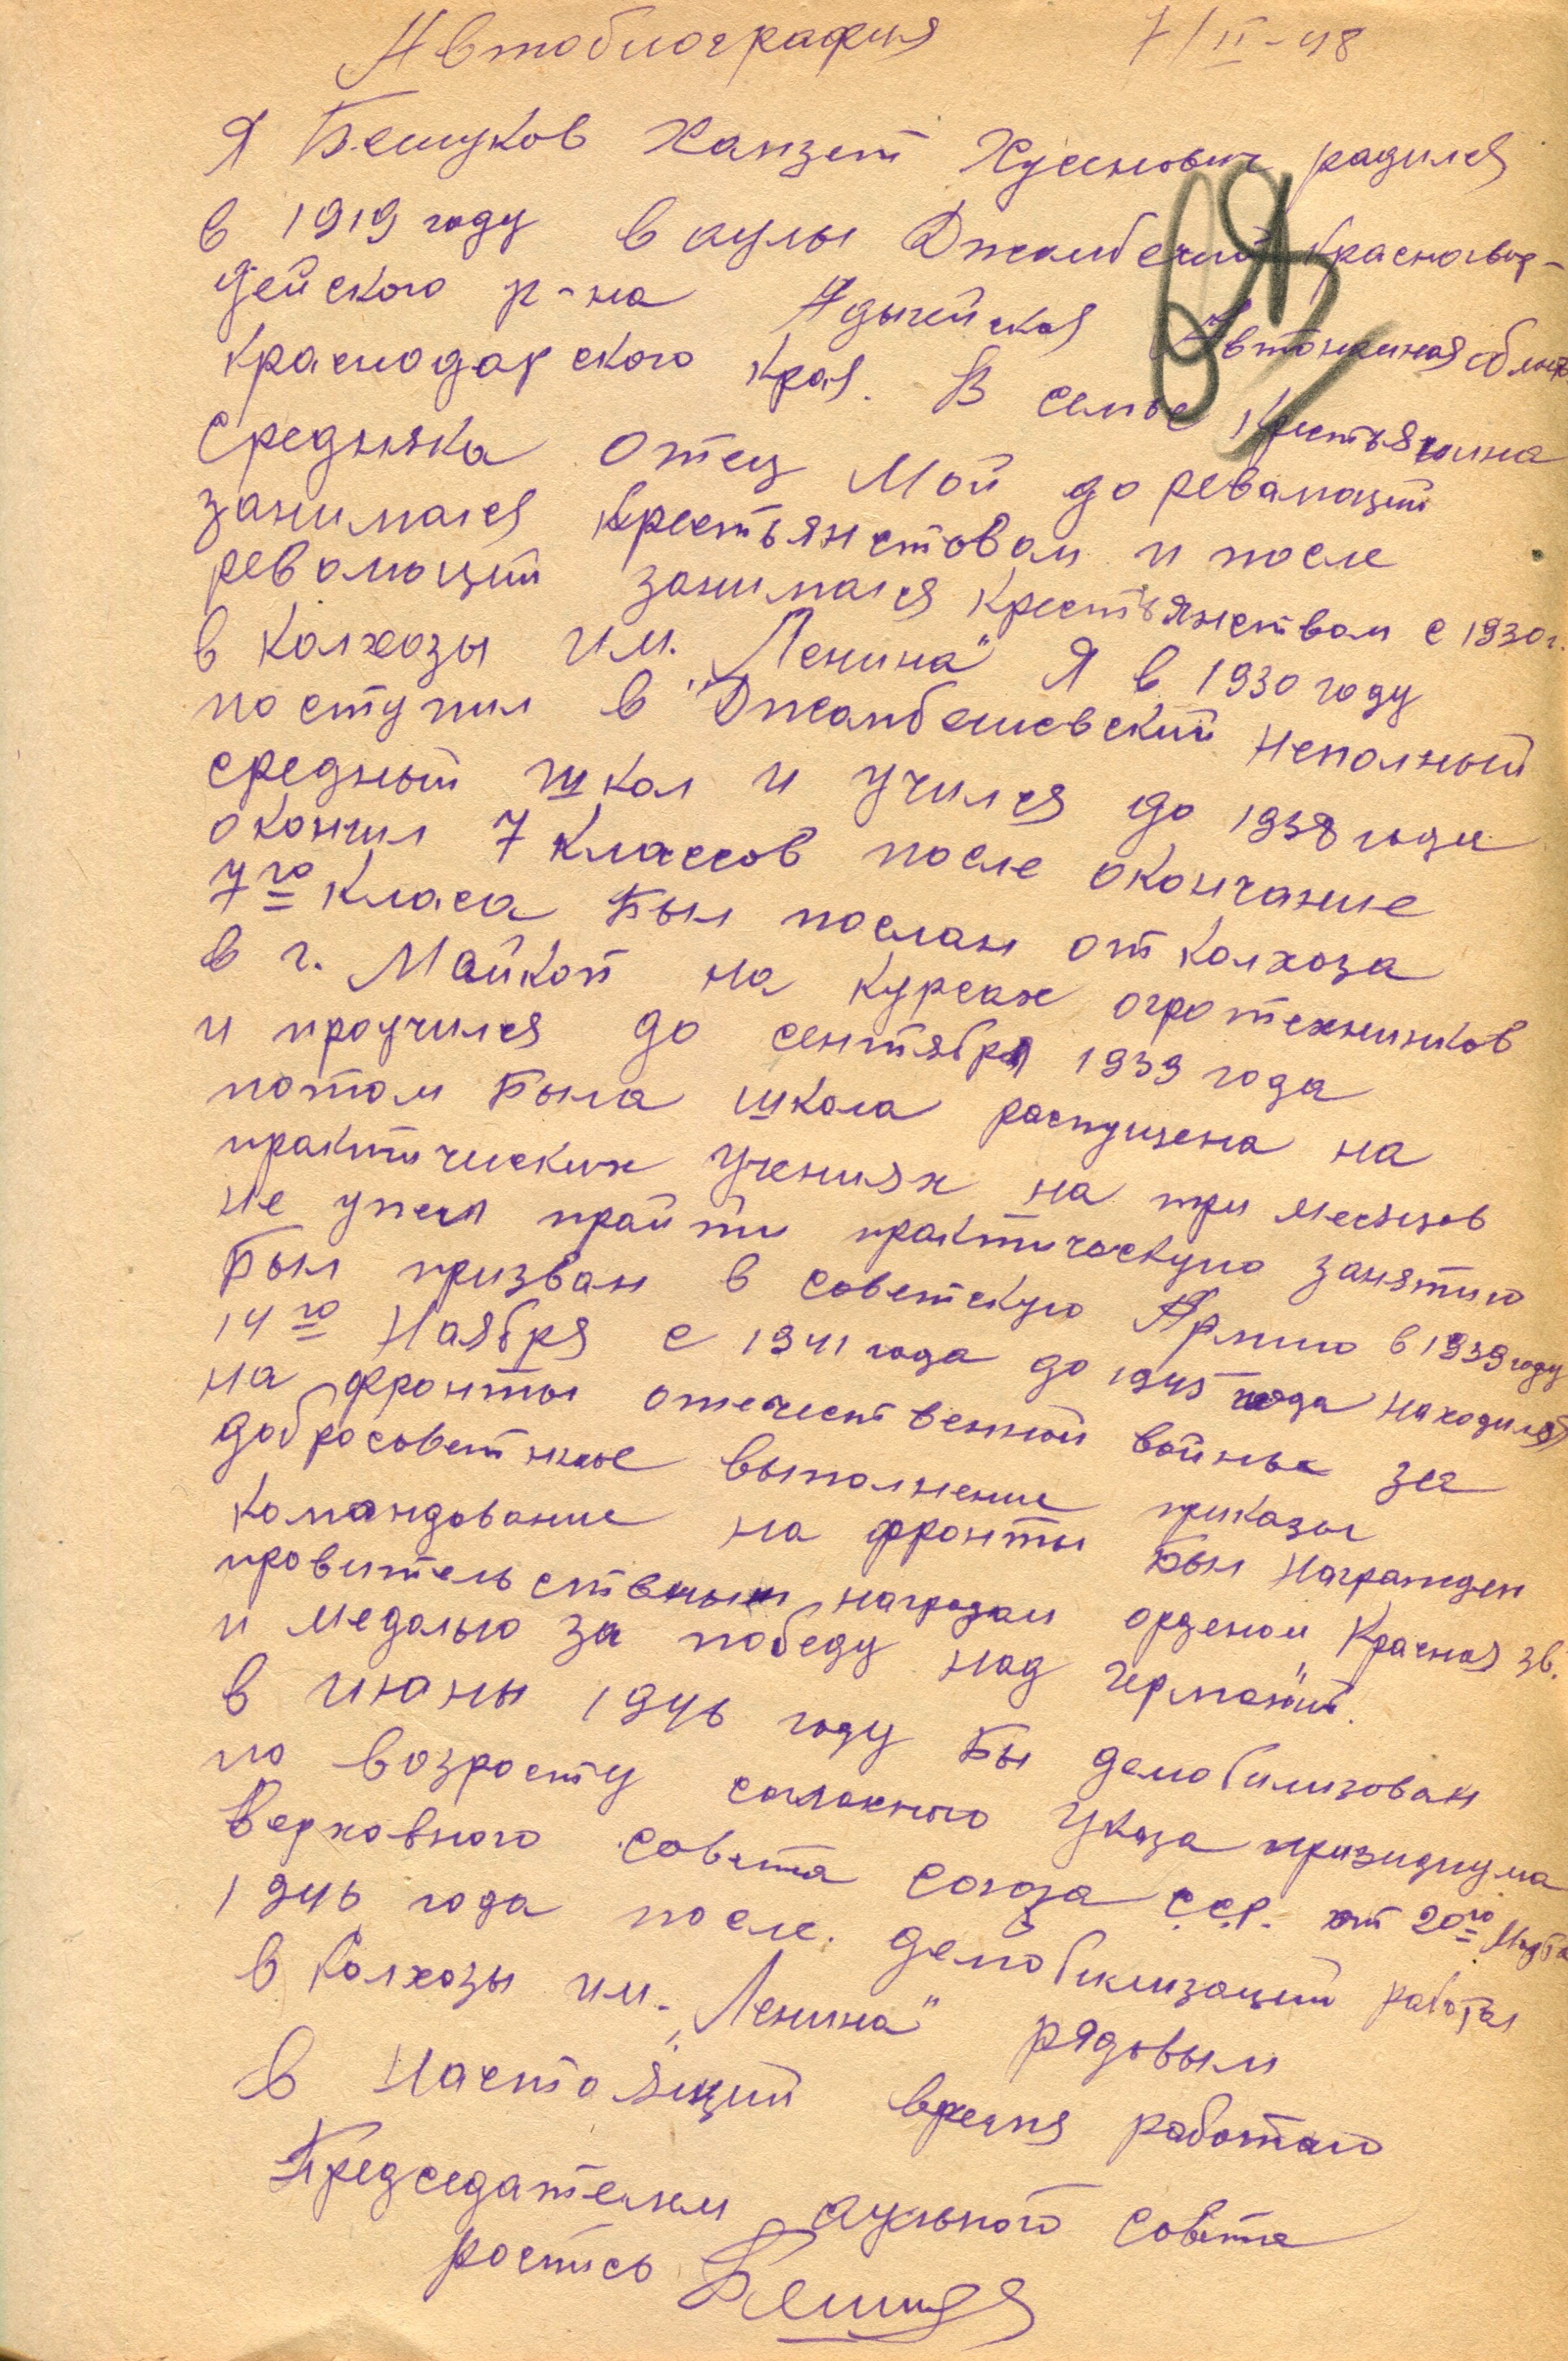 Автобиография 7/II-48
Я Бешуков Ханзет Хусенович радился
в 1919 году в аулы Джамбечий Красногвар-
дейского р-на Адыгейская Автономная область
Краснодарского Края. В семье Крестьянина
Средняка Отец Мой до революций
занимался Крестьянстовом и после
революций занимался Крестьянством с 1930 г.
в Колхозы им. „Ленина" Я в 1930 году
поступил в Джамбешевский Неполный
средный школ и учился до 1938 годы
окончил 7 Классов после окончание
7го Класа Был послан от Колхоза
в г. Майкоп на Курсах огротехников
и проучился до сентября 1939 года
потом Была школа распущена на
практических учениях на три месяцов
не успел прайти практическую занятию
Был призван в Советскую Армию в 1939 году
14го Наября с 1941 года до 1945 года находился
на фронты отечественной войные за
добросоветные выполнение приказы
Командование на фронты Был Награжден
правительственным наградам орденом Красная зв.
и медалью за победу над Германий.
в июны 1946 году Бы демобилизован
по возрасту согласного Указа призидиума
Верховного Совета Союза С.С.Р. от 20го Марта
1946 года после. демобилизаций работал
в Колхозы им. „Ленина" рядовым
В Настоящий время работаю
Председателем аульного Совета
роспись